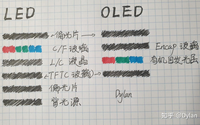 LED
OLED
偏光片
C/F 玻璃
Encap 玻璃
L/C 液晶
有机自发光层
TFT 玻璃
偏光片
背光源
Dylan
知乎 @Dylan